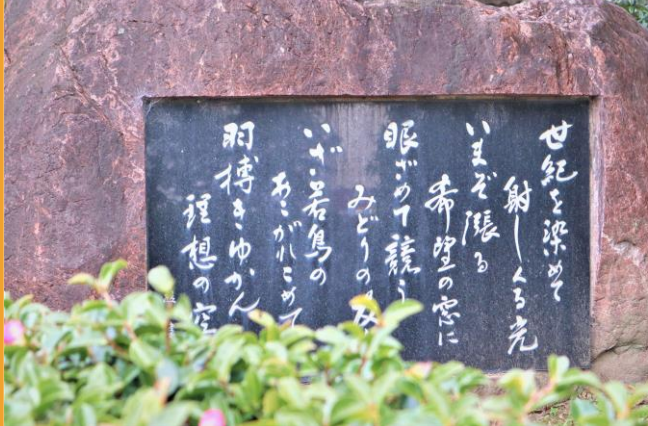 世紀を染めて
射しくる光
いまぞ漲る
希望の窓に
眼ざめて競う
みどりの
いざ若鳥の
あこがれこめて
羽搏きゆかん
理想の空